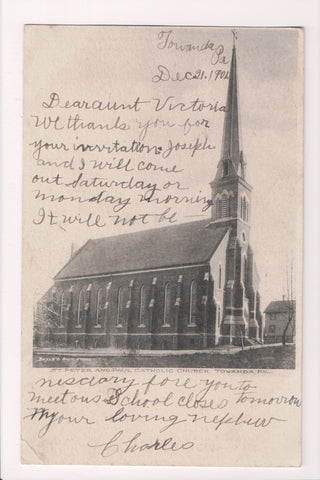 Towanda
Pa
Dec 21. 1906
Dear aunt Victoria
We thanks you for
your invitation. Joseph
and I will come
out Saturday or
monday morning
It will not be
ST. PETER AND PAUL CATHOLIC CHURCH, TOWANDA, PA.
nesdary fore you to
meet ous School closes tomorrow
your loving nephew
Charles